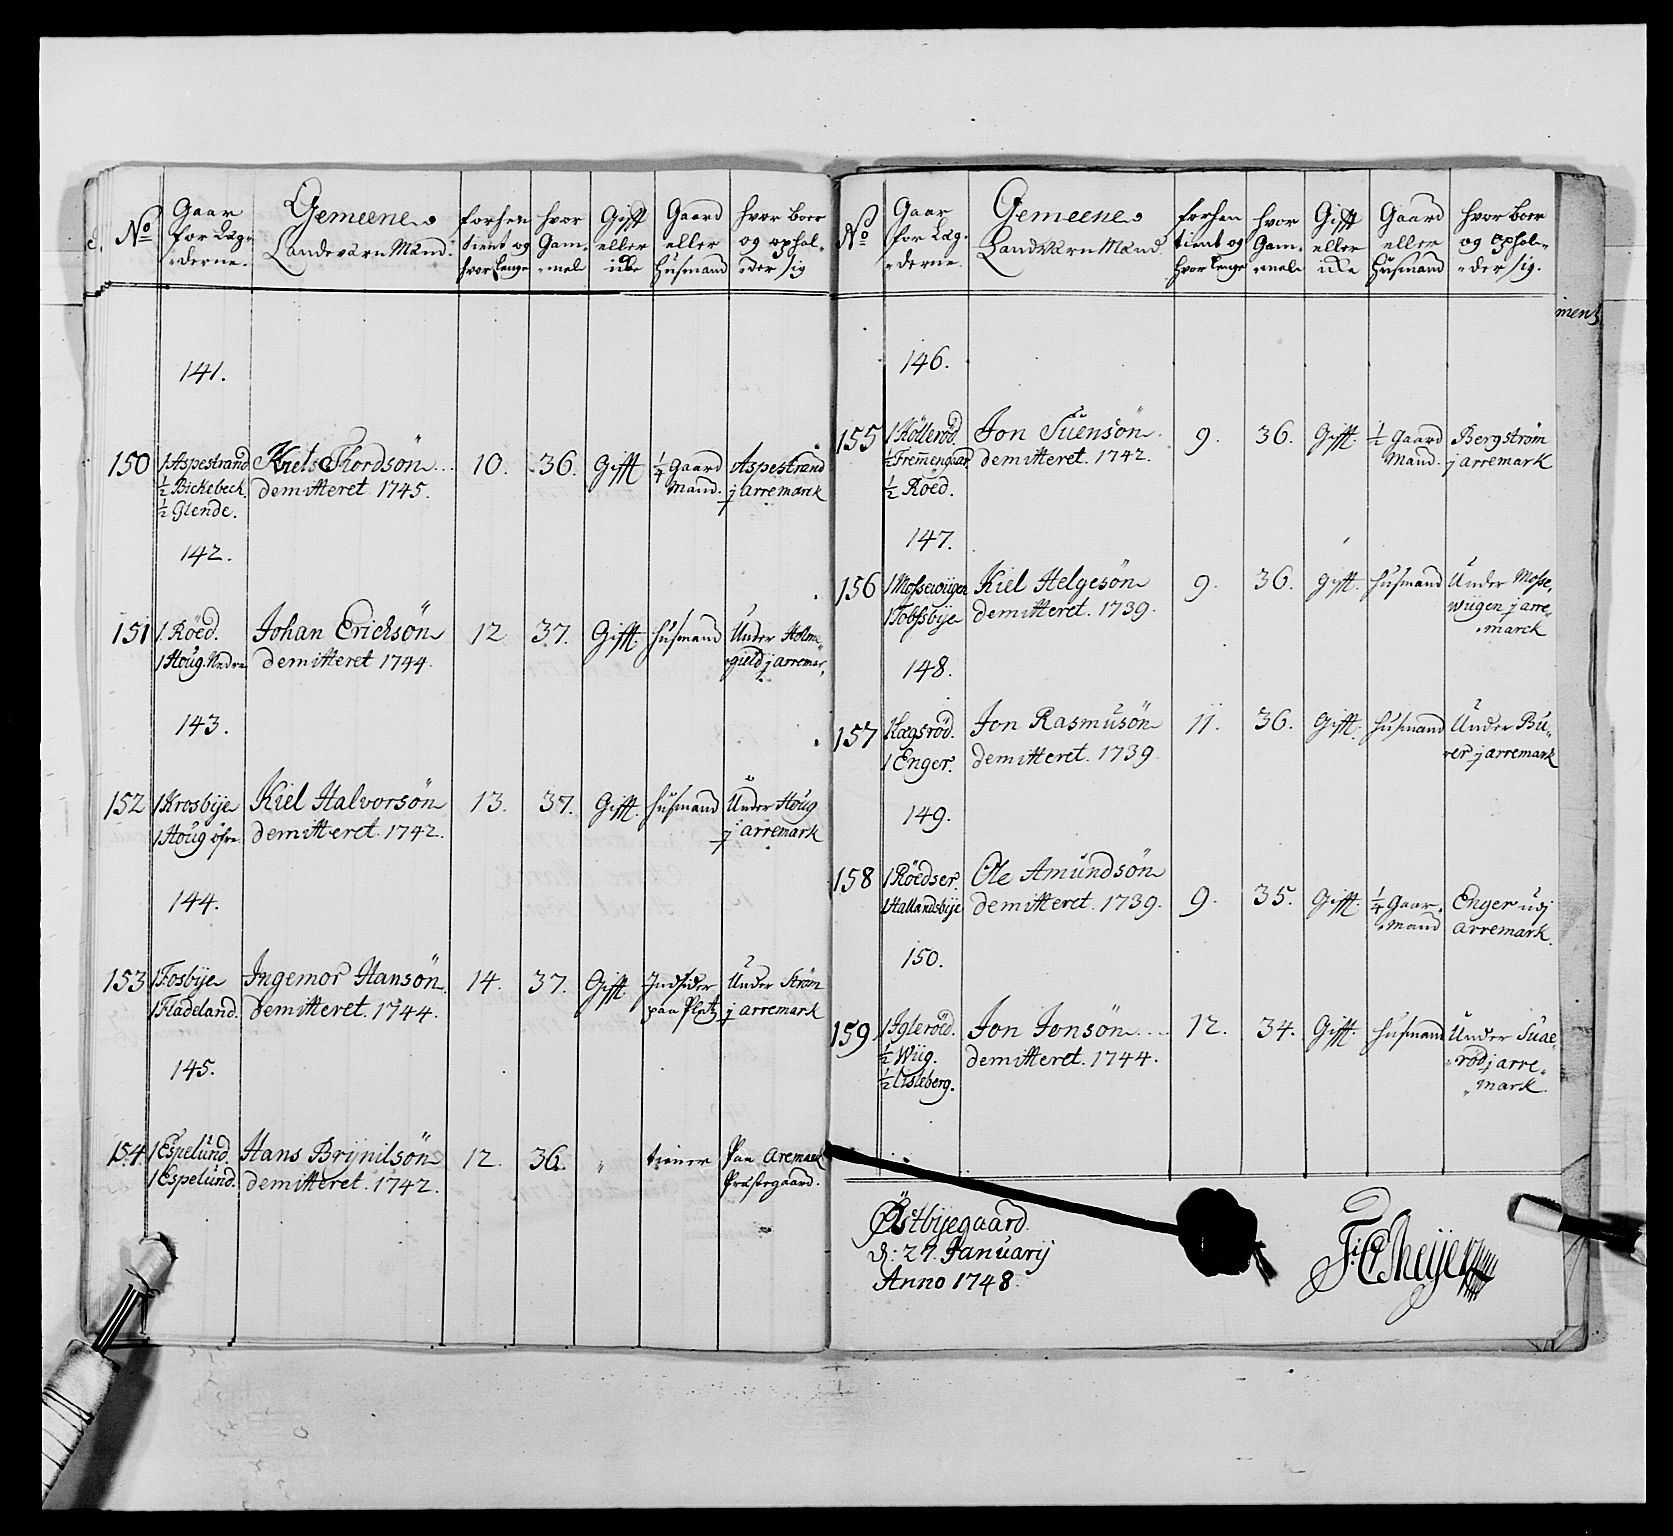 No
Gaar
for Læg-
derne.
Gemeene
Landeværn Mand.
forhen
tient og
hvor lenge
hvor
Gam-
mel
Gifft
eller
icke
Gaard
eller
Husmand
hvor boer
og ophol-
der sig
141.
150
1 Aspestrand
½ Bickebeck
½ Glende.
Niels Thordsön
demitteret 1745.
10.
36.
Gifft
¼ Gaard
Mand.
Aspestrand
j arremarck
142.
151
1. Roed.
1 Houg Nedre
Johan Ericksön
demitteret 1744.
12
37.
Gifft.
Husmand
Under Holm-
gield j arremar,
143.
152
1 Krosbÿe
1 Houg öfre
Kiel Halvorsön
demitteret. 1742.
13.
37.
Gifft.
Husmand
Under Houg
j arremark
144.
153
1 Fosbÿe
1 Fladeland.
Ingemor Hansön.
demitteret. 1744.
14.
37.
Gifft.
Indsider
paa Platz
Under Ström
j arremark
145.
154
1 Espelund.
1 Espelund.
Hans Brÿnilsön
demitteret. 1742.
12.
36.
"
tiener
Paa Aremark
Prestegaard.
No
Gaar
for Læg-
derne.
Gemeene
Landværn Mand
forhen
tient og
hvor lenge
hvor
Gam-
mel
Gifft
eller
icke
Gaard
eller
Husmand
hvor boer
og ophol-
der sig.
ment.
146.
155
1 Kölleröd.
½ Fremengaar
½ Röed.
Jon Suensön.
demitteret. 1742.
9.
36.
Gifft.
½ Gaard
Mand.
Bergström
j arremark
147.
156
1 Mossewiigen
1 Tobsbÿe
Kiel Helgesön
demitteret. 1739.
9.
36.
Gifft.
Husmand
Under Mosse,
wiigen j arre-
marck
148.
157
1 Kægsröd.
1 Enger.
Jon Rasmusön
demitteret. 1739.
11.
36.
Gifft.
Husmand
Under Bu-
rer j arremark
149.
158
1 Röedser
1 Hallandsbÿe
Ole Amundsön
demitteret. 1739.
9.
35.
Gifft.
¼ Gaar-
mand
Enger udj
arremark.
150.
159
1 Igleröed.
½ Wiig.
½ Osleberg.
Jon Jonsön
demitteret. 1744.
12.
34.
Gifft.
Husmand
Under Suae-
röd j arre-
mark
Östbÿegaard.
d: 27. Januarÿ
Anno 1748.